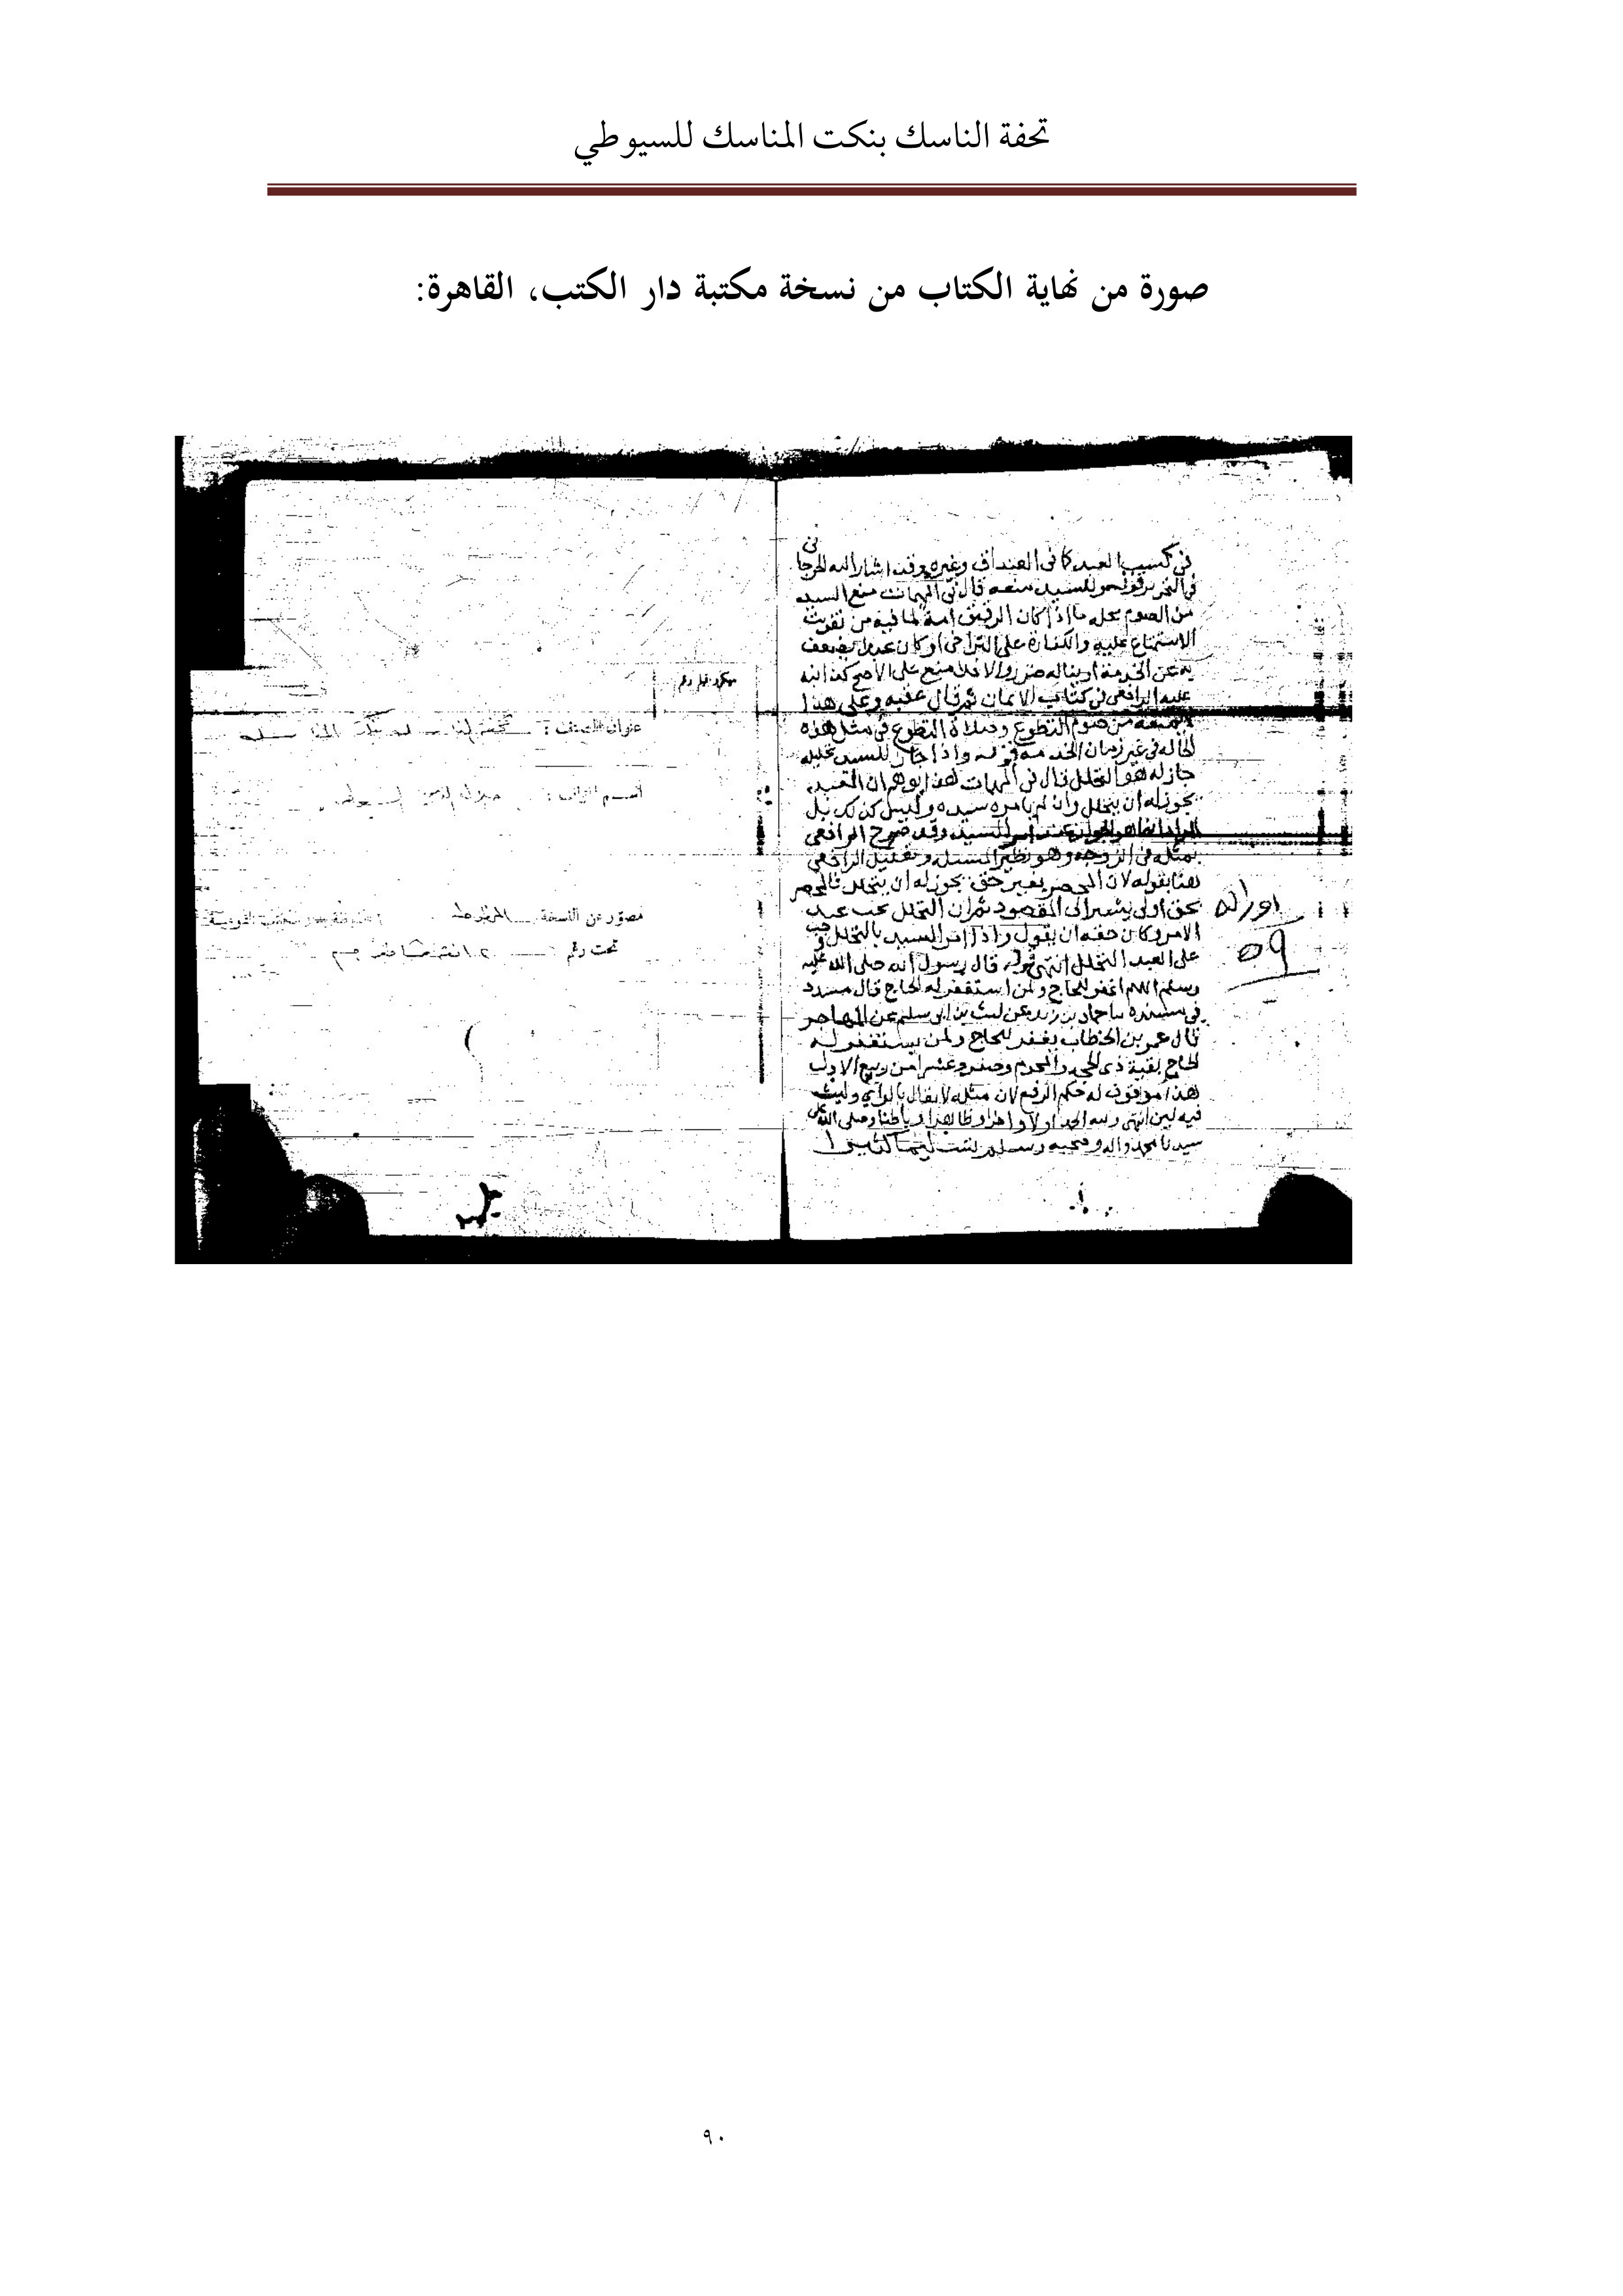 تحفة الناسك بنكت المناسك للسيوطي
صورة من نهاية الكتاب من نسخة مكتبة دار الكتب، القاهرة:
في كسب العبد كما في الصداق وغيره وقد اشار اليه الجرجاني
في التحرير بقوله للسيد منعه قال في المهمات منع السيد
من الصوم محله ما اذا كان الرقيق امة لما فيه من تفويت
الاستمتاع عليه والكفارة على التراخي او كان عبدا يضعف
به عن الخدمة او يناله ضرر والا فلا منع على الاصح كذا
عليه الرافعي في كتاب الايمان ثم قال عقبه وعلى هذا
من صوم التطوع وصلاة التطوع في مثل هذه
الحالة في غير زمان الخدمة قوله واذا جاز للسيد تحليله
جاز له هو التحلل قال في المهمات هذا يوهم ان العبد
يجوز له ان يتحلل وان لم يامره سيده وليس كذلك بل
السيد وقد صرح الرافعي
بمثله في الزوجة وهو نظير المسئلة وتعليل الرافعي
هنا بقوله لان المحصر بغير حق يجوز له ان يتحلل فالمحصر
بحق اولى يشير الى المقصود ثم ان التحلل يجب عند
الامر وكان حقه ان يقول واذا امر السيد بالتحلل وجب
على العبد التحلل انتهى قوله قال رسول الله صلى الله عليه
وسلم اللهم اغفر للحاج ولمن استغفر له الحاج قال مسدد
في مسنده ثنا حماد بن زيد عن ليث بن ابي سليم عن المهاجر
قال عمر بن الخطاب يغفر للحاج ولمن يستغفر له
الحاج بقية ذي الحجة والمحرم وصفر وعشرا من ربيع الاول
هذا موقوف له حكم الرفع لان مثله لا يقال بالرأي وليث
فيه لين انتهى ولله الحمد اولا واخرا وظاهرا وباطنا وصلى الله على
سيدنا محمد واله وصحبه وسلم تسليما كثيرا
٥٩
عنوان المصنف :
اسم المؤلف : جلال الدين السيوطي
مصور عن النسخة المخطوطة
تحت رقم
٩٠